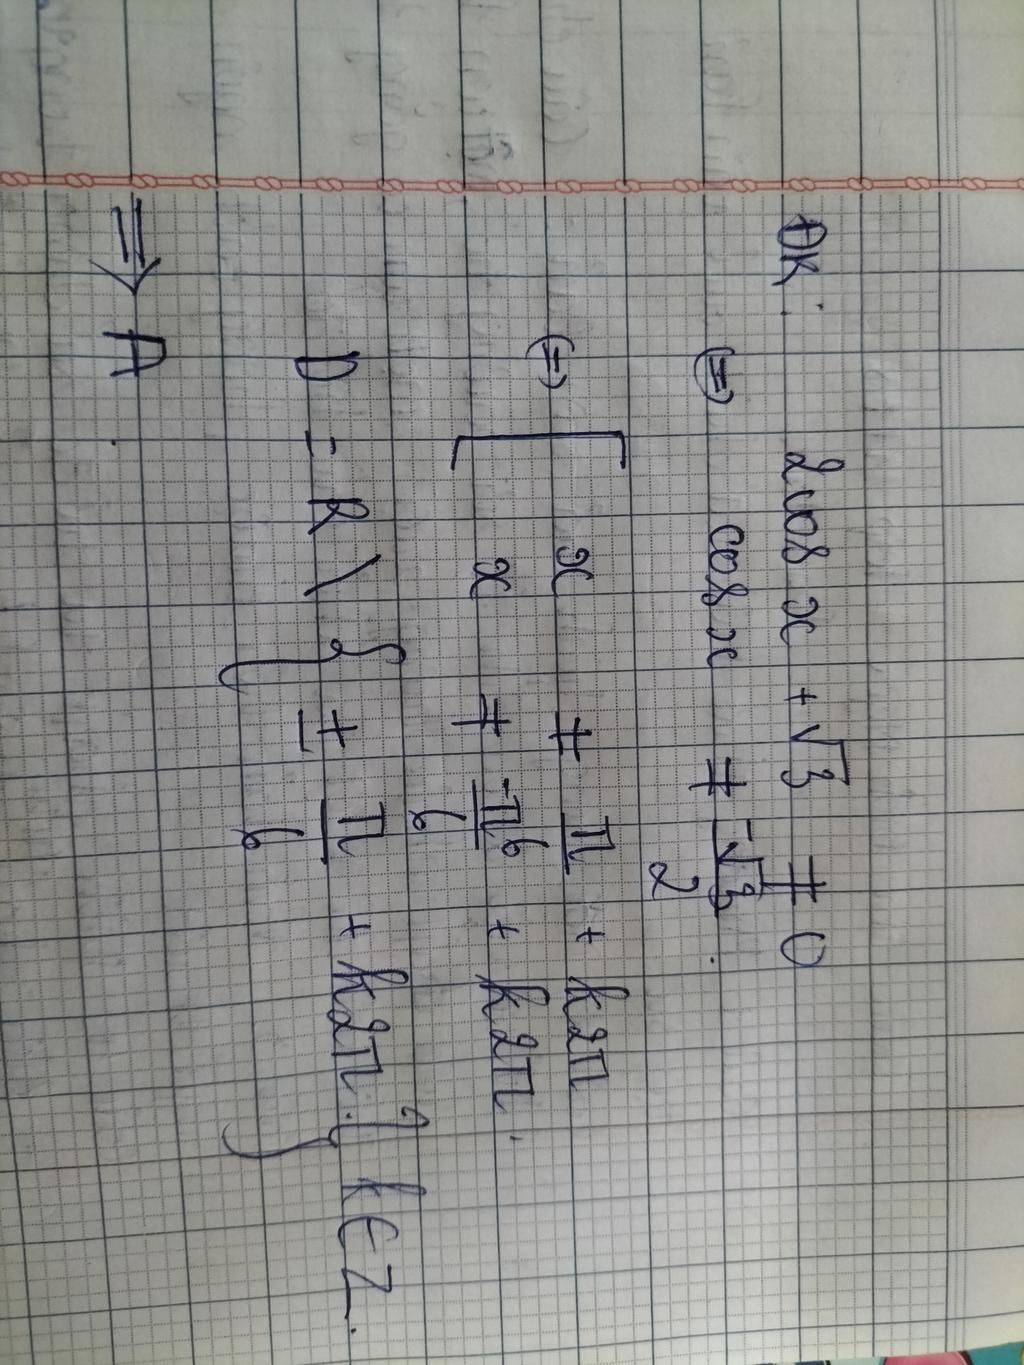 ĐK: 2cos x + √3 ≠ 0
⇔ cos x ≠ -√3/2.
⇔ [ x ≠ π/6 + k2π
x ≠ -π/6 + k2π.
D = R \ { ± π/6 + k2π. } k∈Z.
⇒ A.